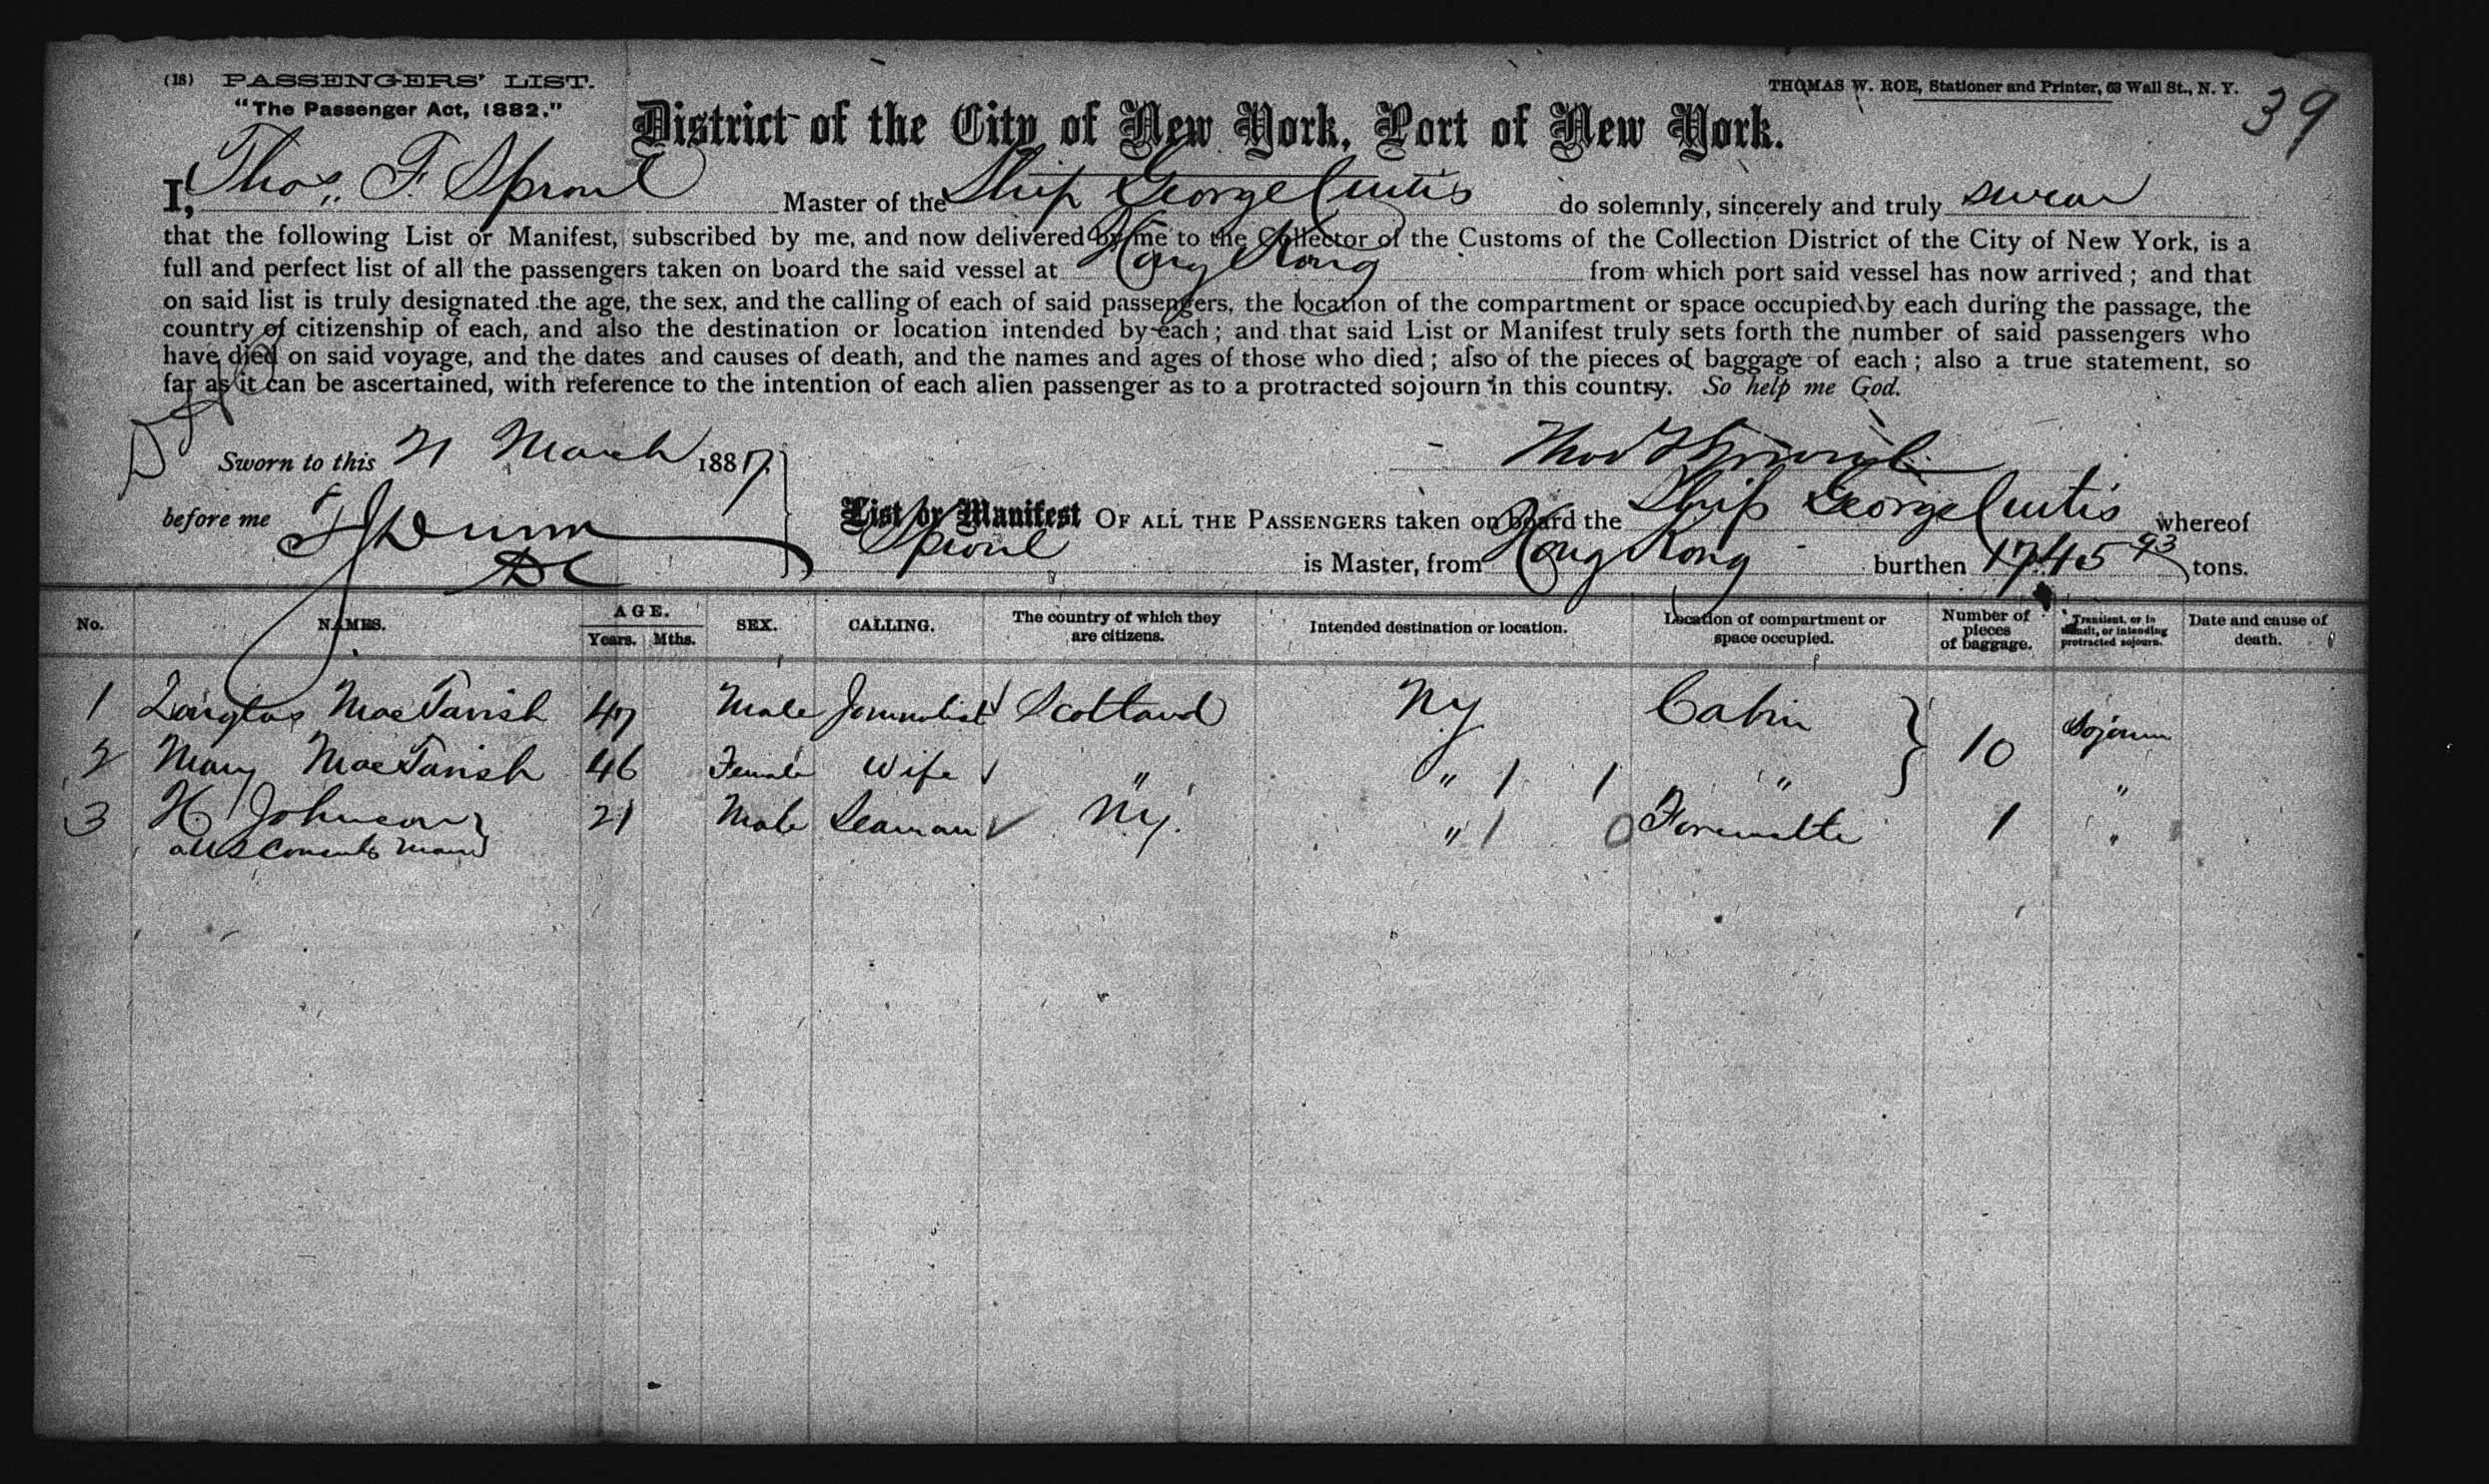 (18) PASSENGERS' LIST.
"The Passenger Act, 1882."
THOMAS W. ROE, Stationer and Printer, 63 Wall St., N. Y.
39
District of the City of New York, Port of New York.
I, Thos. F. Sproul Master of the Ship George Curtis do solemnly, sincerely and truly swear
that the following List or Manifest, subscribed by me, and now delivered by me to the Collector of the Customs of the Collection District of the City of New York, is a
full and perfect list of all the passengers taken on board the said vessel at Hong Kong from which port said vessel has now arrived; and that
on said list is truly designated the age, the sex, and the calling of each of said passengers, the location of the compartment or space occupied by each during the passage, the
country of citizenship of each, and also the destination or location intended by each; and that said List or Manifest truly sets forth the number of said passengers who
have died on said voyage, and the dates and causes of death, and the names and ages of those who died; also of the pieces of baggage of each; also a true statement, so
far as it can be ascertained, with reference to the intention of each alien passenger as to a protracted sojourn in this country. So help me God.
Sworn to this 21 March 1887
Thos F Sproul
before me Dunn
DC
List or Manifest OF ALL THE PASSENGERS taken on board the Ship George Curtis whereof
Sproul is Master, from Hong Kong burthen 1745 93 tons.
No. NAMES. AGE. Years. Mths. SEX. CALLING. The country of which they are citizens. Intended destination or location. Location of compartment or space occupied. Number of pieces of baggage. Transient, or in transit, or intending protracted sojourn. Date and cause of death.
1 Douglas MacTavish 47 Male Journalist Scotland NY Cabin 10 Sojourn
2 Mary MacTavish 46 Female Wife " " 1 1 " "
3 H. Johnson 21 Male Seaman NY. " 1 0 1 "
a US Consuls man